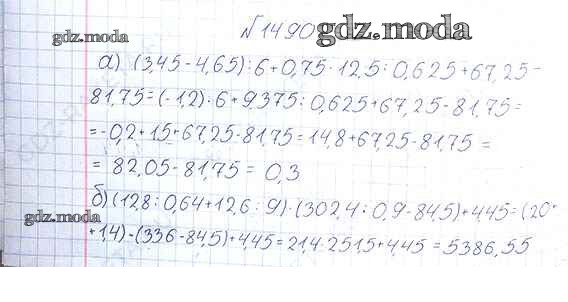 №1490
gdz.moda
gdz.moda
а) (3,45-4,65):6+0,75·12,5:0,625+67,25-
81,75=(-1,2):6+9,375:0,625+67,25-81,75=
=-0,2+15+67,25-81,75=14,8+67,25-81,75=
= 82,05-81,75 = 0,3
б) (12,8:0,64+12,6:9)·(302,4:0,9-84,5)+4,45=(20+
gdz.moda
+1,4)·(336-84,5)+4,45=21,4·251,5+4,45=5386,55